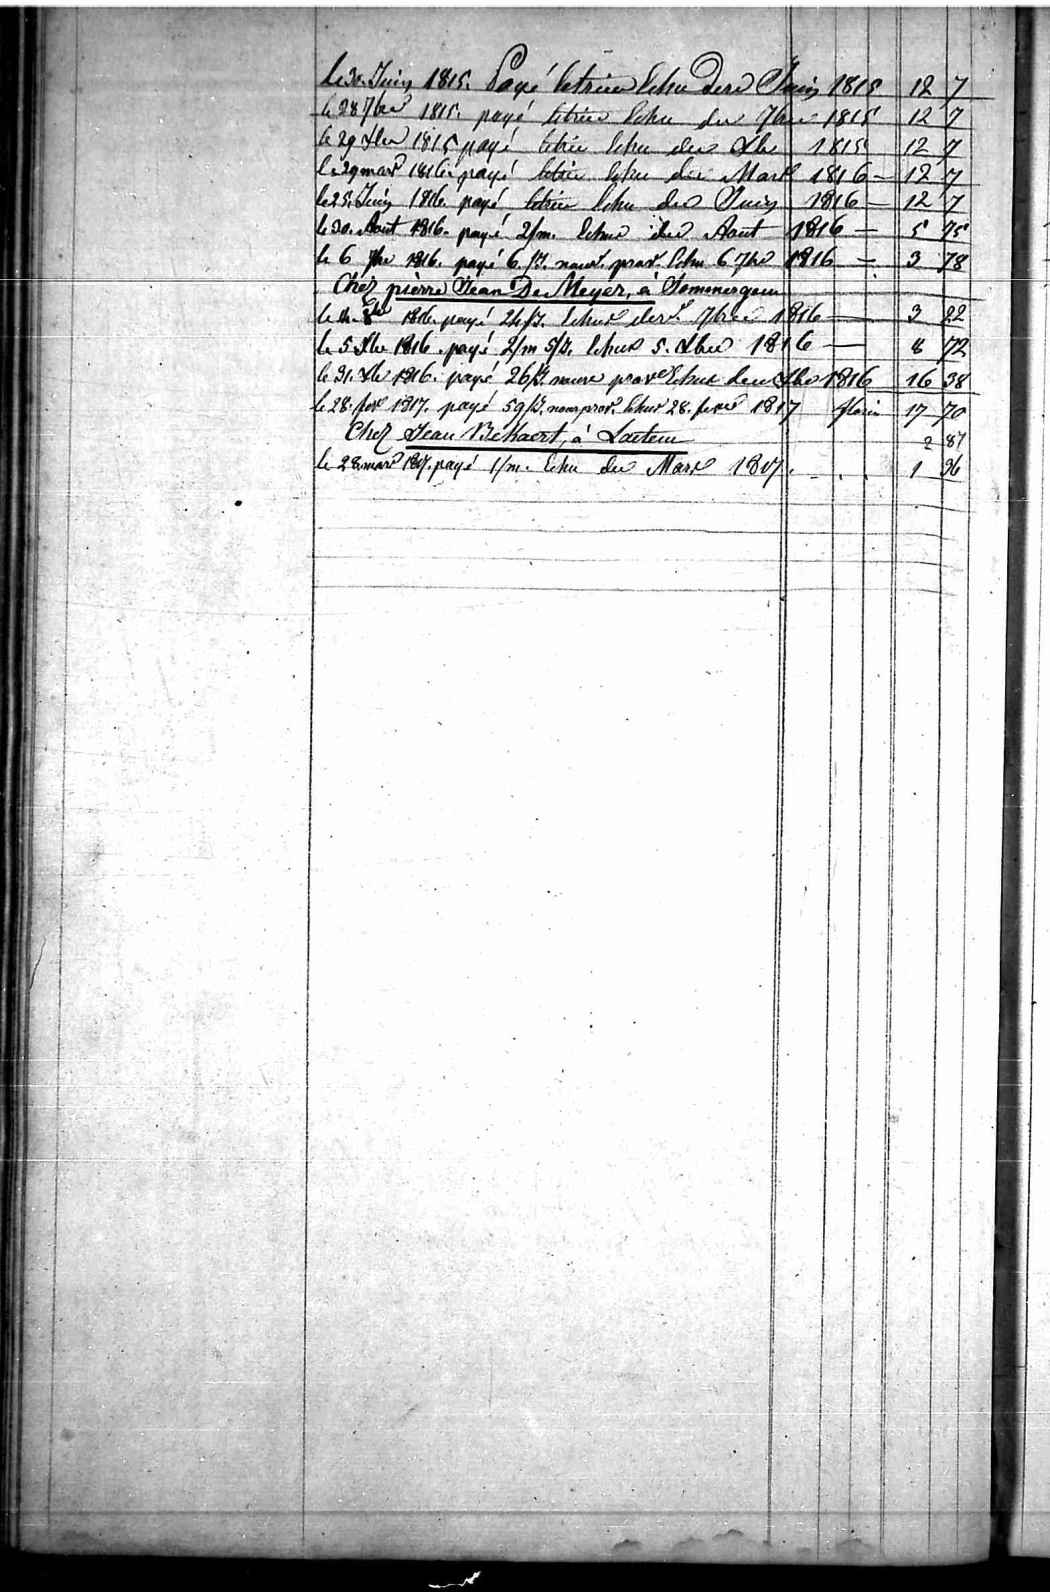 le 30. Juin 1815. Payé letrim Echu der Juin 1815 12 7
le 28 7bre 1815. payé letrim Echu der 7bre 1815 12 7
le 29 Xbre 1815 payé letrim Echu der Xbre 1815 12 7
le 29 mars 1816. payé letrim Echu der Mars 1816 — 12 7
le 28. Juin 1816. payé letrim Echu der Juin 1816 — 12 7
le 30. Aout 1816. payé 2/m. Echus der Aout 1816 — 5 75
le 6 7bre 1816. payé 6 /J. nour. prov. Echu 6 7bre 1816 — 3 78
Chez pièrre Jean De Meyer, à Sommergem
le 4. 8bre 1816. payé 24/J. Echus der 7bre 1816 — 3 22
le 5 Xbre 1816. payé 2/m 5/J. Echus 5. Xbre 1816 — 8 72
le 31. Xbre 1816. payé 26/J. nour prov Echus der Xbre 1816 16 38
le 28. fevr 1817. payé 59/J. nour prov. Echus 28. fevr 1817 florin 17 70
Chez Jean Bekaert, à Laetem 2 87
le 28 mars 1817. payé 1/m. Echu der Mars 1817. 1 36